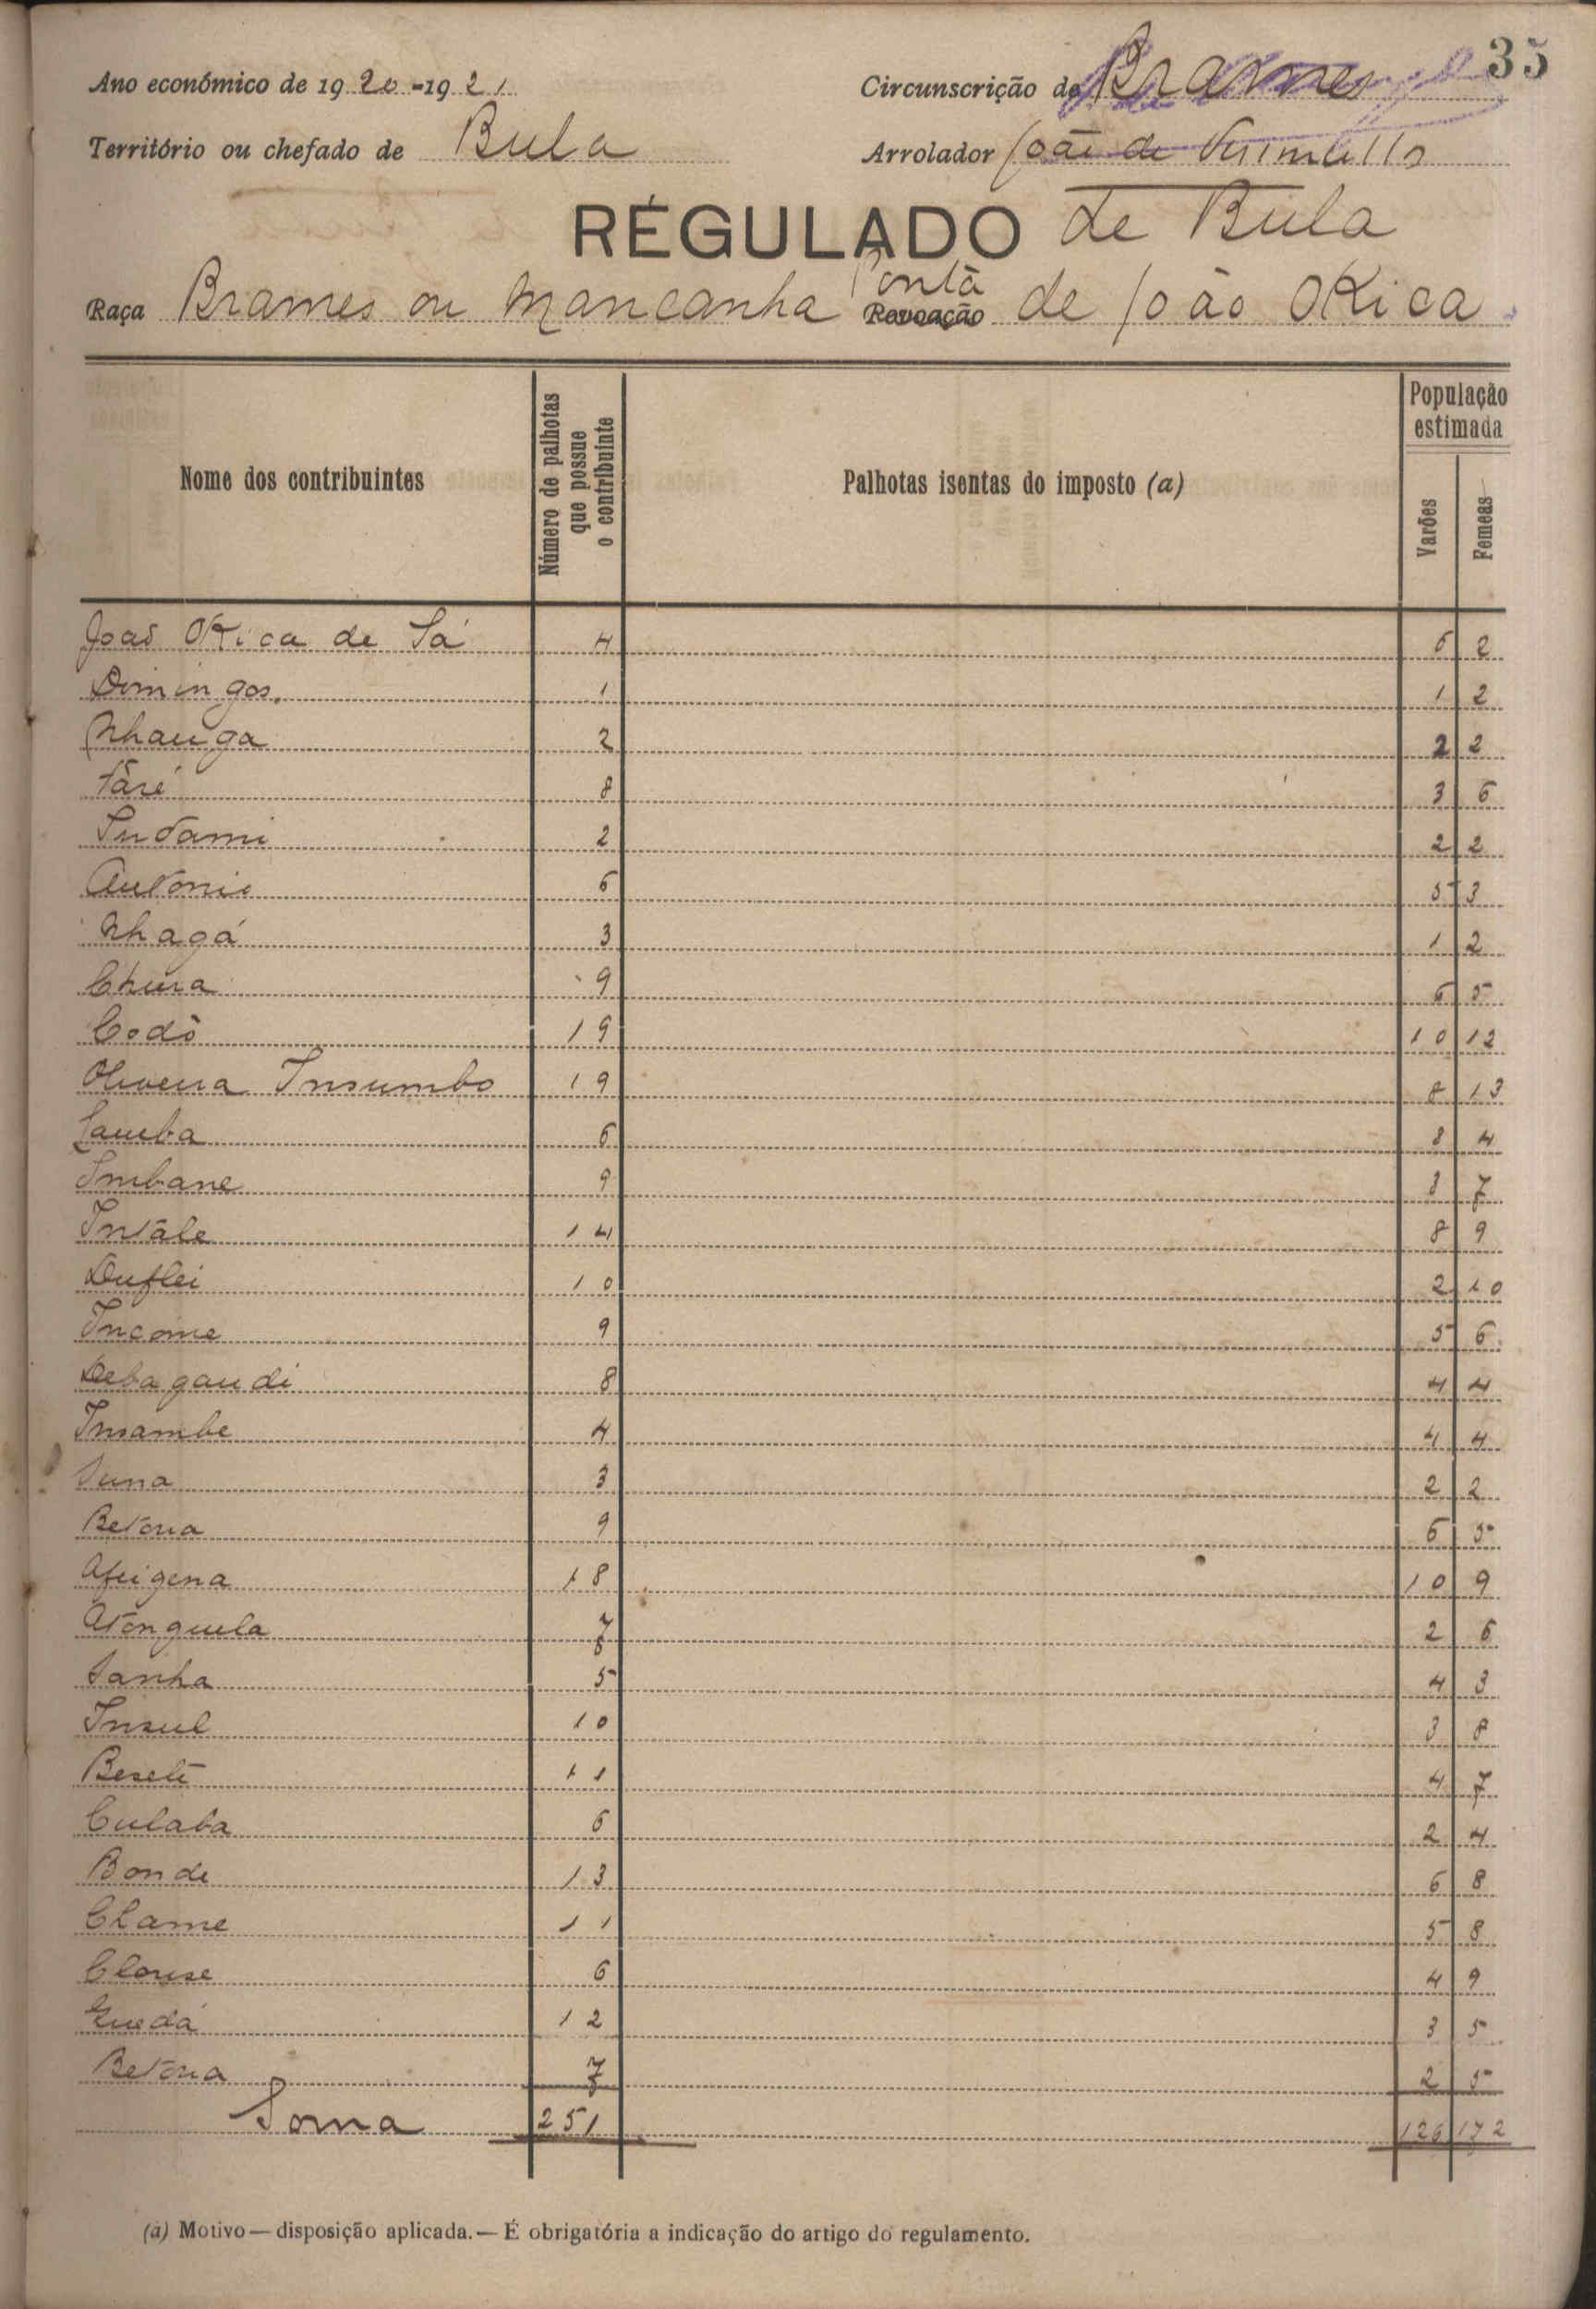 35
Ano económico de 1920-1921
Circunscrição de Brames
Território ou chefado de Bula
Arrolador João de
RÉGULADO de Bula
Raça Brames ou Mancanha Ponta de João Okica
Nome dos contribuintes
Número de palhotas que possue o contribuinte
Palhotas isentas do imposto (a)
População estimada
Varões
Femeas
João Okica de Sá 4 6 2
Domingos 1 1 2
Nhanga 2 2 2
Táré 8 3 6
2 2 2
Antonio 6 5 3
Nhagá 3 1 2
Chura 9 6 5
Codó 19 10 12
Oliveira Insumbo 19 8 13
6 3 4
Imbane 9 3 7
Intále 14 8 9
10 2 10
Income 9 5 6
8 4 4
Insambe 4 4 4
3 2 2
Betoria 9 6 5
18 10 9
Atonguela 7 2 6
Sanha 5 4 3
Insul 10 3 8
11 4 7
Culaba 6 2 4
Bonde 13 6 8
Clame 11 5 8
6 4 9
Quedá 12 3 5
Betoria 7 2 5
Soma 251 126 172
(a) Motivo — disposição aplicada. — É obrigatória a indicação do artigo do regulamento.